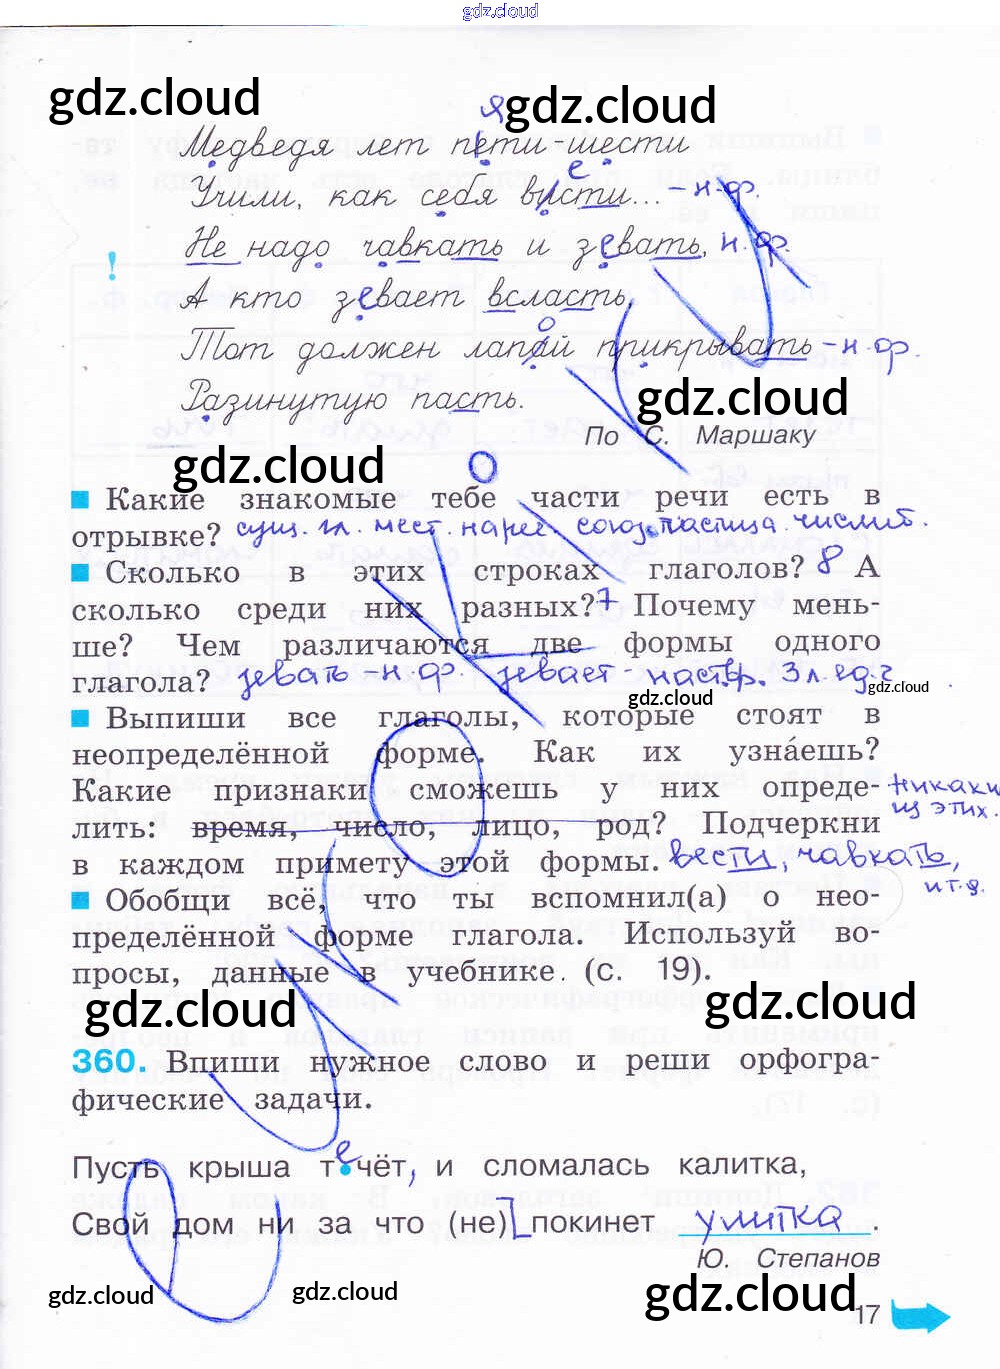 gdz.cloud
gdz.cloud
gdz.cloud
я
Медведя лет пети-шести
е
Учили, как себя висти... – н.ф.
Не надо чавкать и зевать, н.ф.
! А кто зевает всласть,
о
Тот должен лапай прикрывать – н.ф.
Разинутую пасть.
gdz.cloud
По С. Маршаку
gdz.cloud
Какие знакомые тебе части речи есть в
отрывке? сущ. гл. мест. нареч. союз. частица. числит.
Сколько в этих строках глаголов? 8 А
сколько среди них разных? 7 Почему мень-
ше? Чем различаются две формы одного
глагола? зевать н.ф. зевает – наст.вр. 3 л ед.ч
gdz.cloud
gdz.cloud
Выпиши все глаголы, которые стоят в
неопределённой форме. Как их узна́ешь?
Какие признаки сможешь у них опреде- никаки
лить: время, число, лицо, род? Подчеркни из этих.
в каждом примету этой формы. вести, чавкать,
и т.д.
Обобщи всё, что ты вспомнил(а) о нео-
пределённой форме глагола. Используй во-
просы, данные в учебнике (с. 19).
gdz.cloud
gdz.cloud
360. Впиши нужное слово и реши орфогра-
фические задачи.
Пусть крыша течёт, и сломалась калитка,
Свой дом ни за что (не) покинет улитка.
Ю. Степанов
gdz.cloud
gdz.cloud
gdz.cloud
17